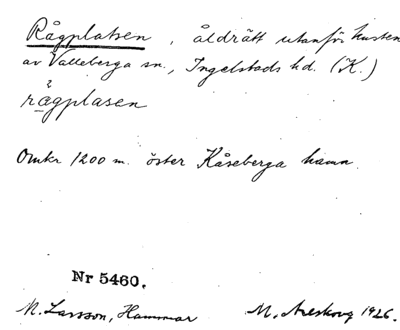 Rågplatsen, åldrätt utanför kusten
av Valleberga sn., Ingelstads hd. (K.)
rågplasen
Omkr 1200 m. öster Kåseberga hamn.
Nr 5460.
N. Larsson, Hammar M. Areskoug 1926.